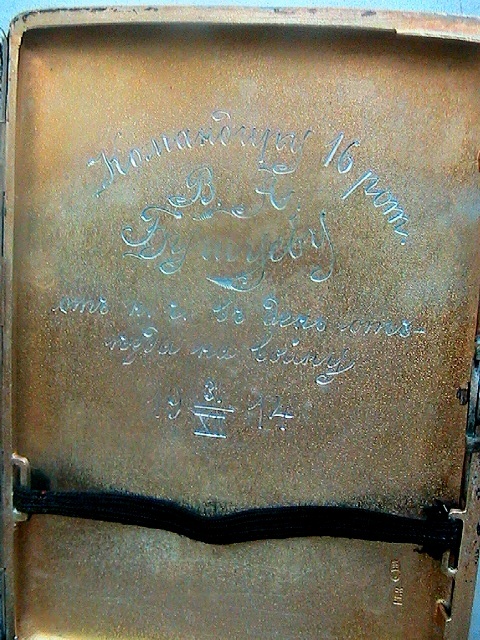 Командиру 16 рот.
В. А.
Бутусову
отъ н. ч. въ день отъ-
ѣзда на войну
19 8. XII 14.